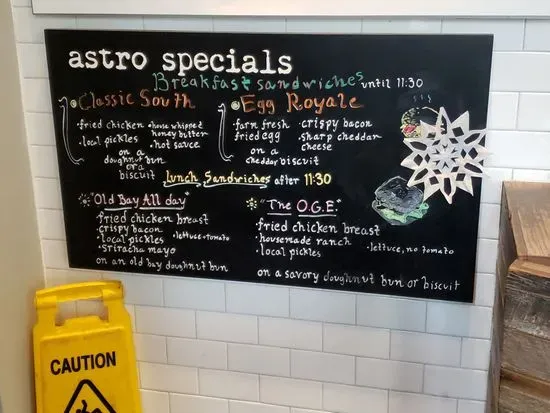 astro specials
Breakfast sandwiches until 11:30
Classic South
• fried chicken • house whipped honey butter
• local pickles • hot sauce
on a
doughnut bun
or a
biscuit
Egg Royale
• farm fresh fried egg • crispy bacon
• sharp cheddar cheese
on a
cheddar biscuit
Lunch Sandwiches after 11:30
"Old Bay All day"
fried chicken breast
• crispy bacon
• local pickles • lettuce + tomato
• Sriracha mayo
on an old bay doughnut bun
"The O.G.E."
• fried chicken breast
• housemade ranch • lettuce, no tomato
• local pickles
on a savory doughnut bun or biscuit
CAUTION